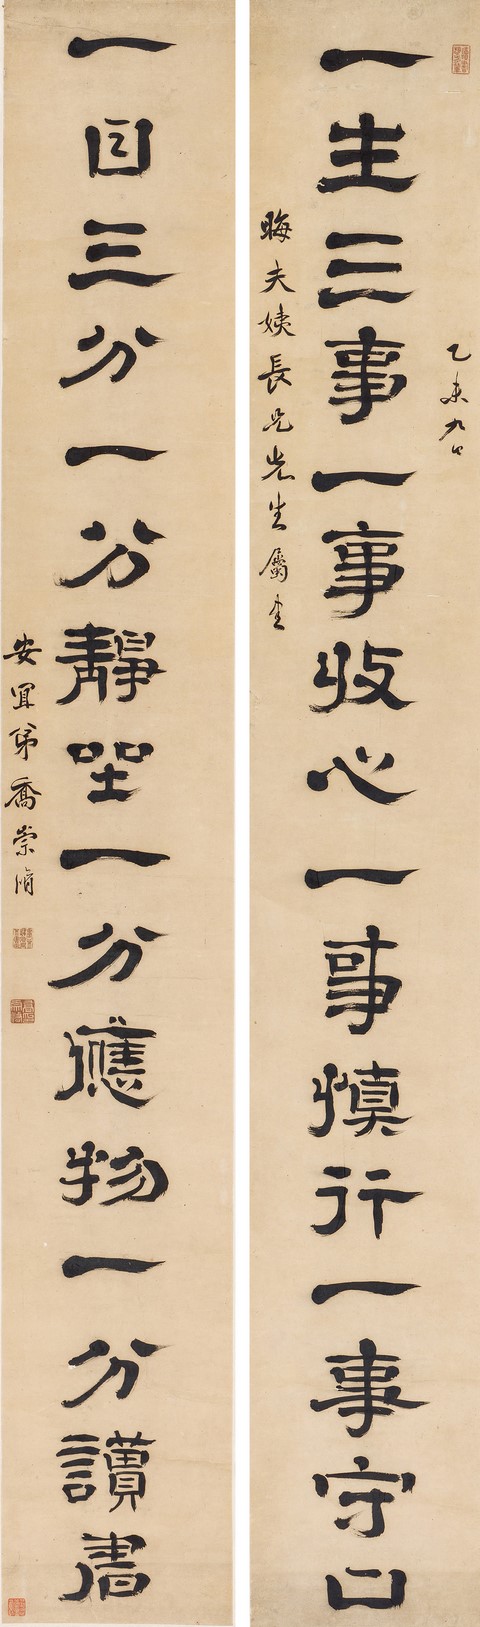 乙未九
一生三事一事收心一事慎行一事守口
晦夫姨長兄先生屬書
一日三分一分靜坐一分應物一分讀書
安宜弟喬崇脩